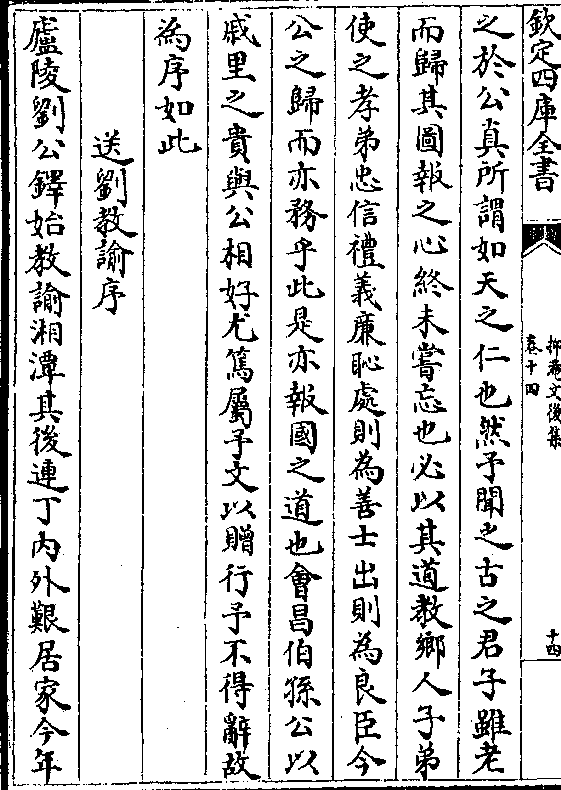 欽定四庫全書
抑菴文後集
卷十四
十四
之於公真所謂如天之仁也然予聞之古之君子雖老
而歸其圖報之心終未嘗忘也必以其道教鄉人子弟
使之孝弟忠信禮義廉恥處則為善士出則為良臣今
公之歸而亦務乎此是亦報國之道也會昌伯孫公以
戚里之貴與公相好尤篤屬予文以贈行予不得辭故
為序如此
送劉教諭序
廬陵劉公鐸始教諭湘潭其後連丁內外艱居家今年